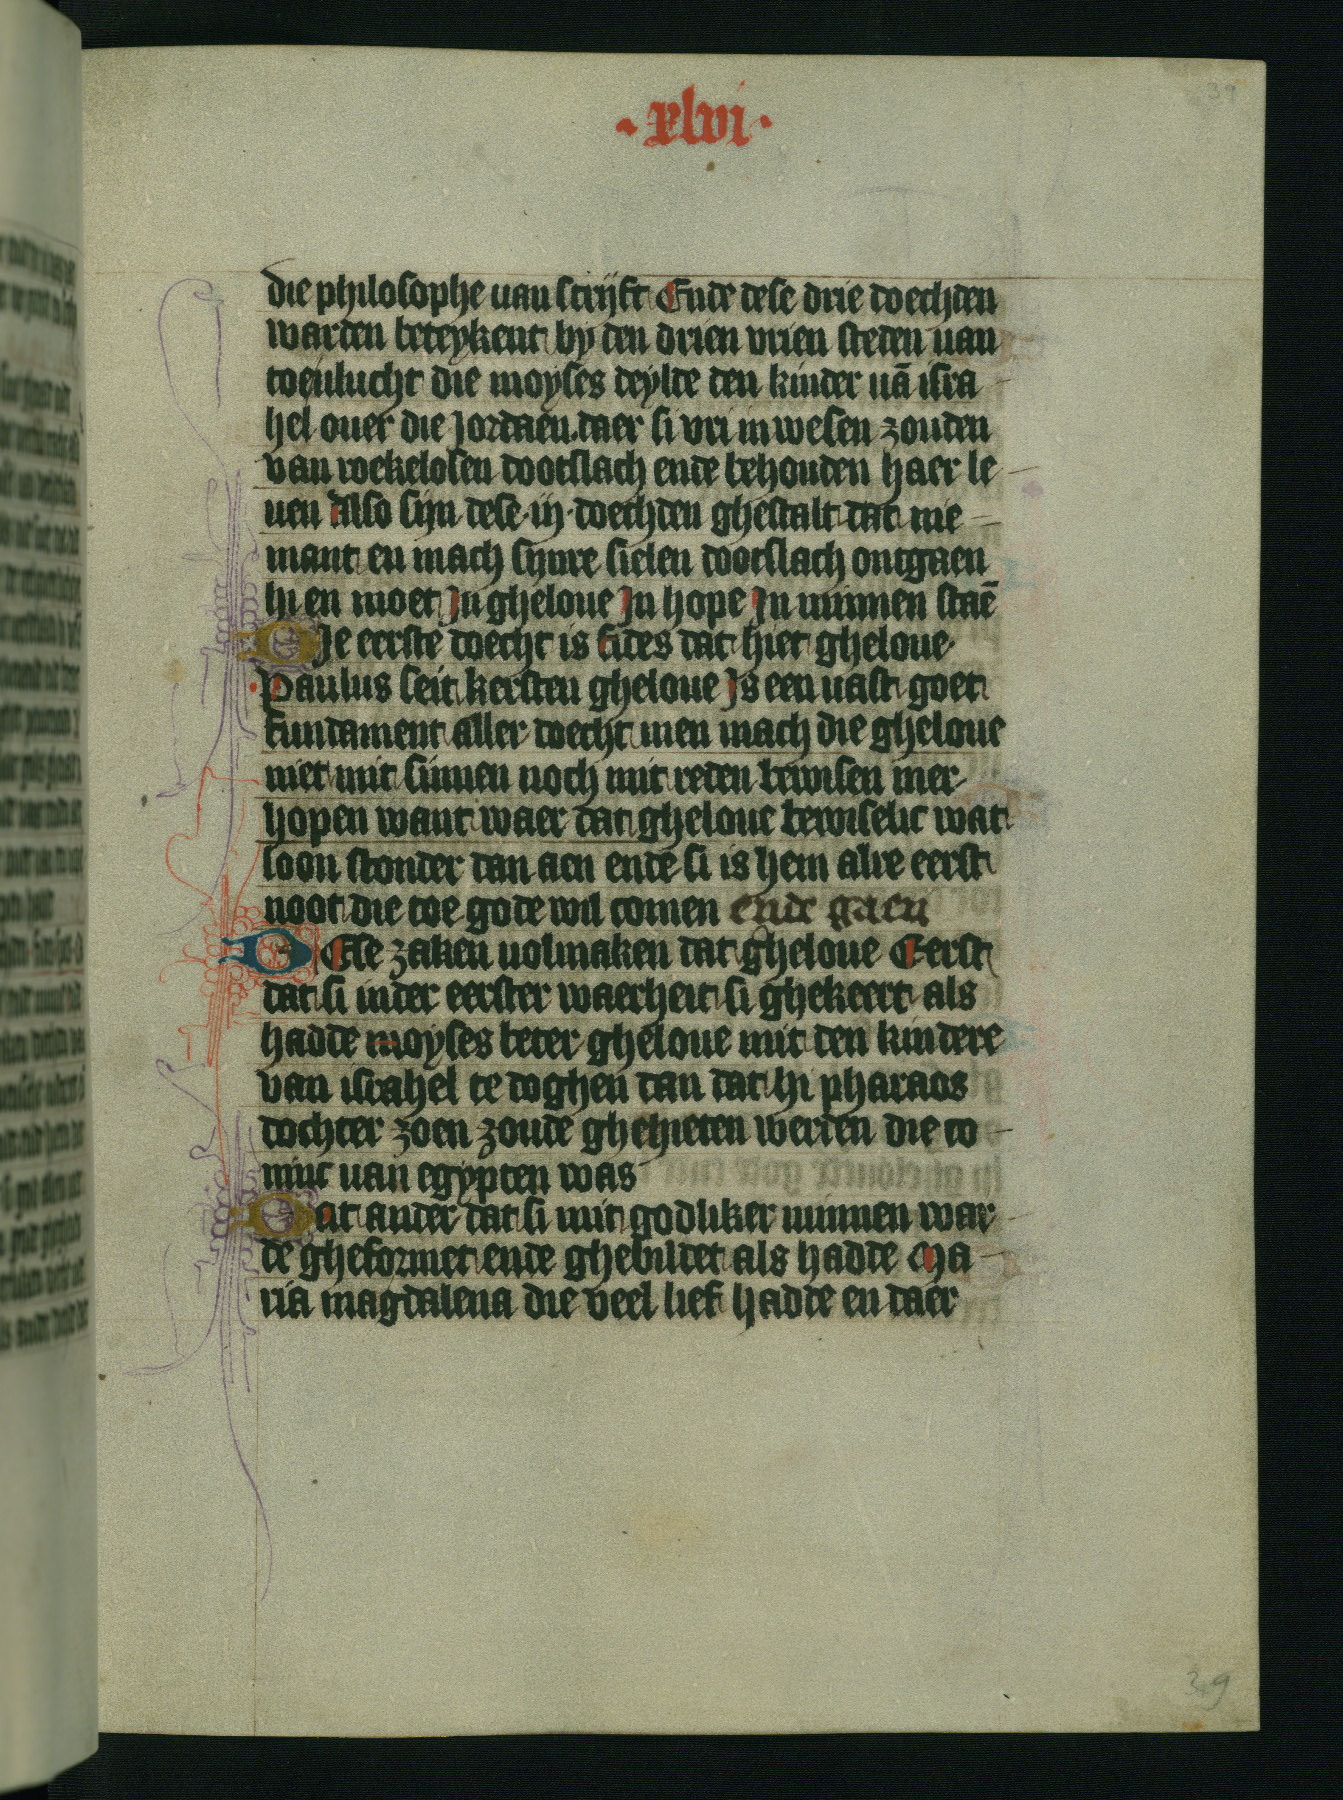 39
·xlvi·
die philosophe van scrijft Ende dese drie doechden
warden beteykent by den drien vrien steden van
toeulucht die moyses deylde den kinder uā isra
hel ouer die Jordaen daer si vri in wesen zouden
van roekelosen dootslach ende behouden haer le
uen Also sijn dese iij doechden ghestalt dat nie
mant en mach synre sielen dootslach ontgaen
hi en moet In gheloue In hope In minnen staē
DIe eerste doecht is fides dat hiet gheloue
Paulus seit kersten gheloue Is een vast goet
fundament aller doecht men mach die gheloue
niet mit sinnen noch mit reden bewisen mer
hopen want waer dat gheloue bewiselic wat
loon stonder dan aen ende si is hem alre eerst
noot die toe gode wil comen ende gaen
DEse zaken volmaken dat gheloue Eerst
dat si inder eerster waerheit si ghekeert als
hadde moyses beter gheloue mit den kindere
van israhel te doghen dan dat hi pharaos
dochter zoen zoude ghehieten werden die co
ninc van egypten was
Dat ander dat si mit godliker minnen war
de gheformet ende ghebildet als hadde Ma
ria magdalena die veel lief hadde en daer
39